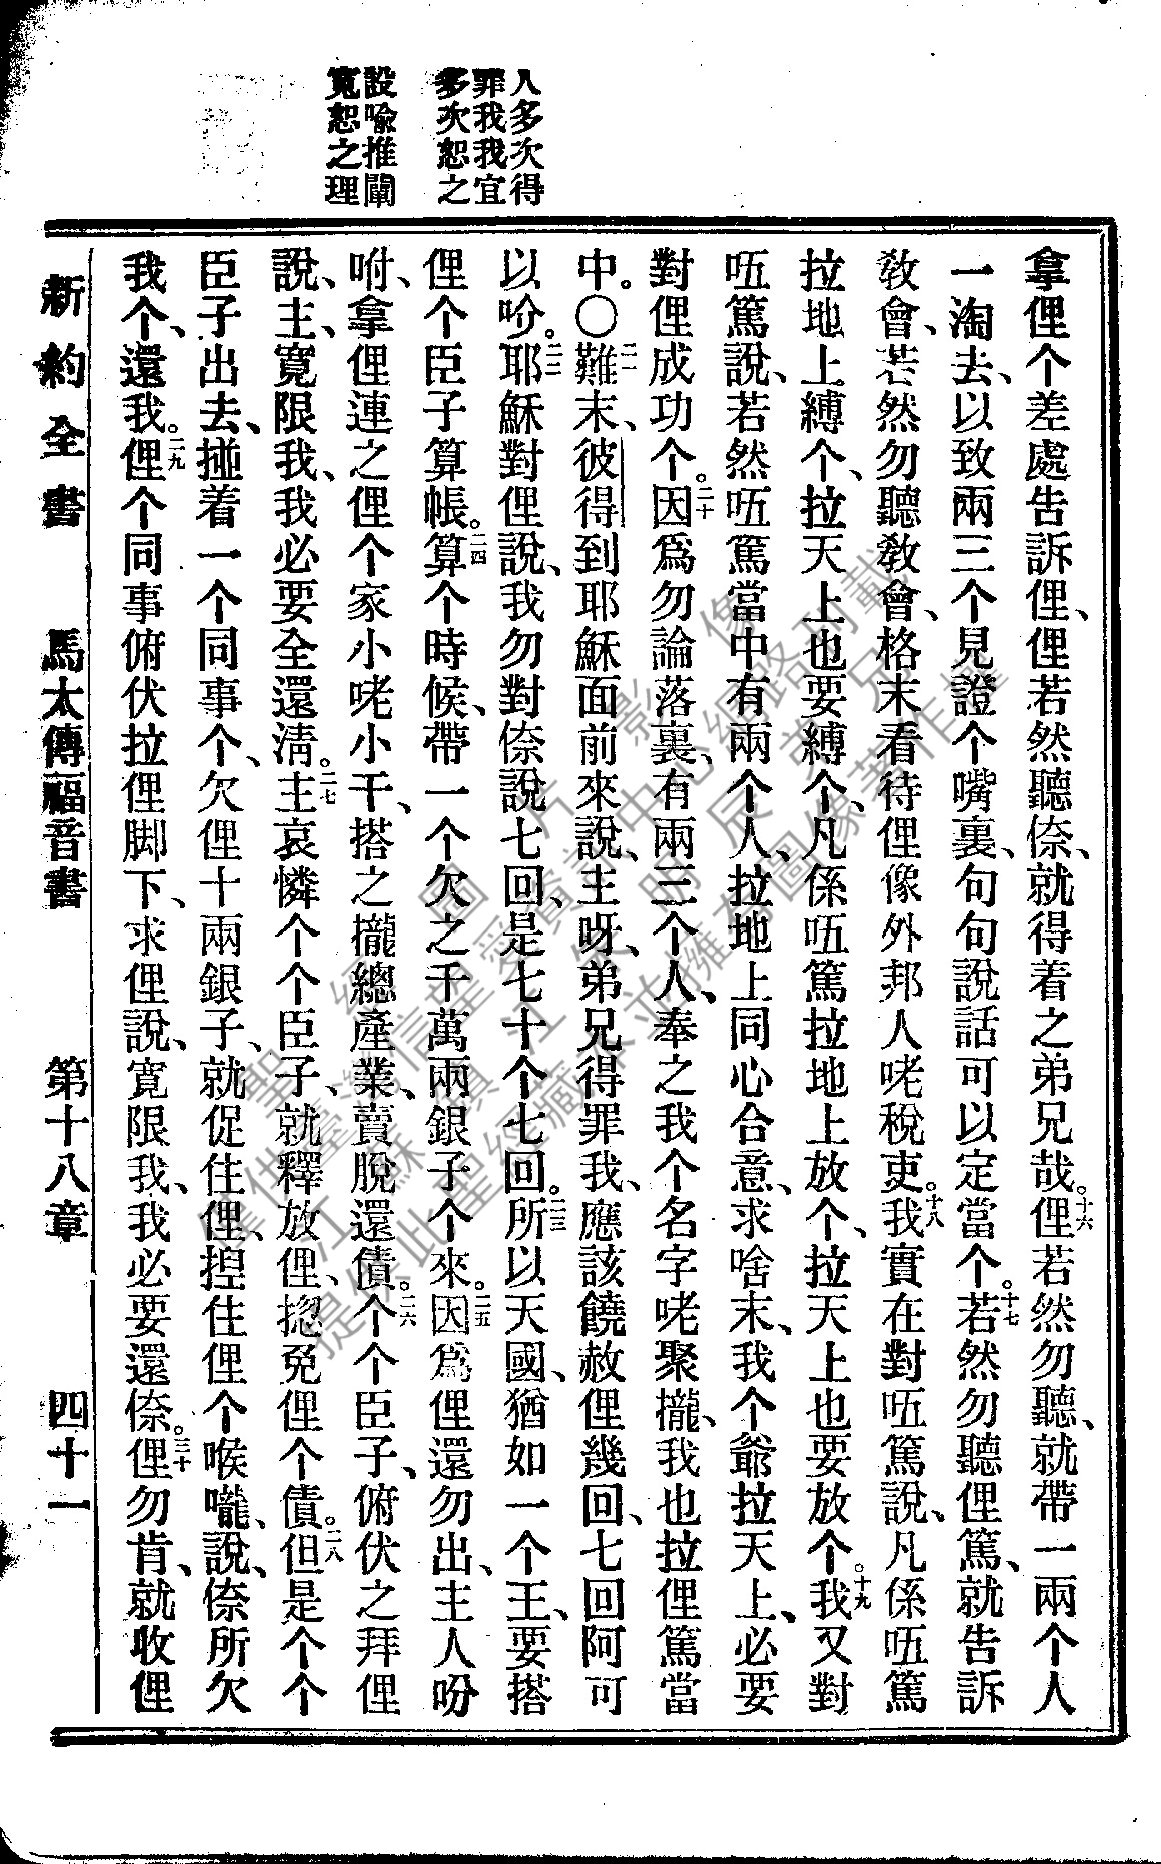 人多次得
罪我我宜
多次恕之
設喻推闡
寬恕之理
拿俚个差處告訴俚、俚若然聽倷、就得着之弟兄哉。十六俚若然勿聽、就帶一兩个人
一淘去、以致兩三个見證个嘴裏、句句說話可以定當个。十七若然勿聽俚篤、就告訴
敎會、若然勿聽敎會、格末看待俚像外邦人咾稅吏。十八我實在對唔篤說、凡係唔篤
拉地上縛个、拉天上也要縛个、凡係唔篤拉地上放个、拉天上也要放个。十九我又對
唔篤說、若然唔篤當中有兩个人、拉地上同心合意、求啥末、我个爺拉天上、必要
對俚成功个。二十因爲勿論落裏、有兩三个人、奉之我个名字咾聚攏、我也拉俚篤當
中。○二一難末、彼得到耶穌面前來說、主呀、弟兄得罪我、應該饒赦俚幾回、七回阿可
以吤。二二耶穌對俚說、我勿對倷說七回、是七十个七回。二三所以天國、猶如一个王、要搭
俚个臣子算帳。二四算个時候、帶一个欠之千萬兩銀子个來。二五因爲俚還勿出、主人吩
咐、拿俚連之俚个家小咾小干、搭之攏總產業、賣脫還債。二六个个臣子、俯伏之拜俚
說、主、寬限我、我必要全還淸。二七主哀憐个个臣子、就釋放俚、揔免俚个債。二八但是个个
臣子出去、碰着一个同事个、欠俚十兩銀子、就促住俚、揑住俚个喉嚨、說、倷所欠
我个、還我。二九俚个同事俯伏拉俚脚下、求俚說、寬限我、我必要還倷。三十俚勿肯、就收俚
新約全書　馬太傳福音書　第十八章　四十一